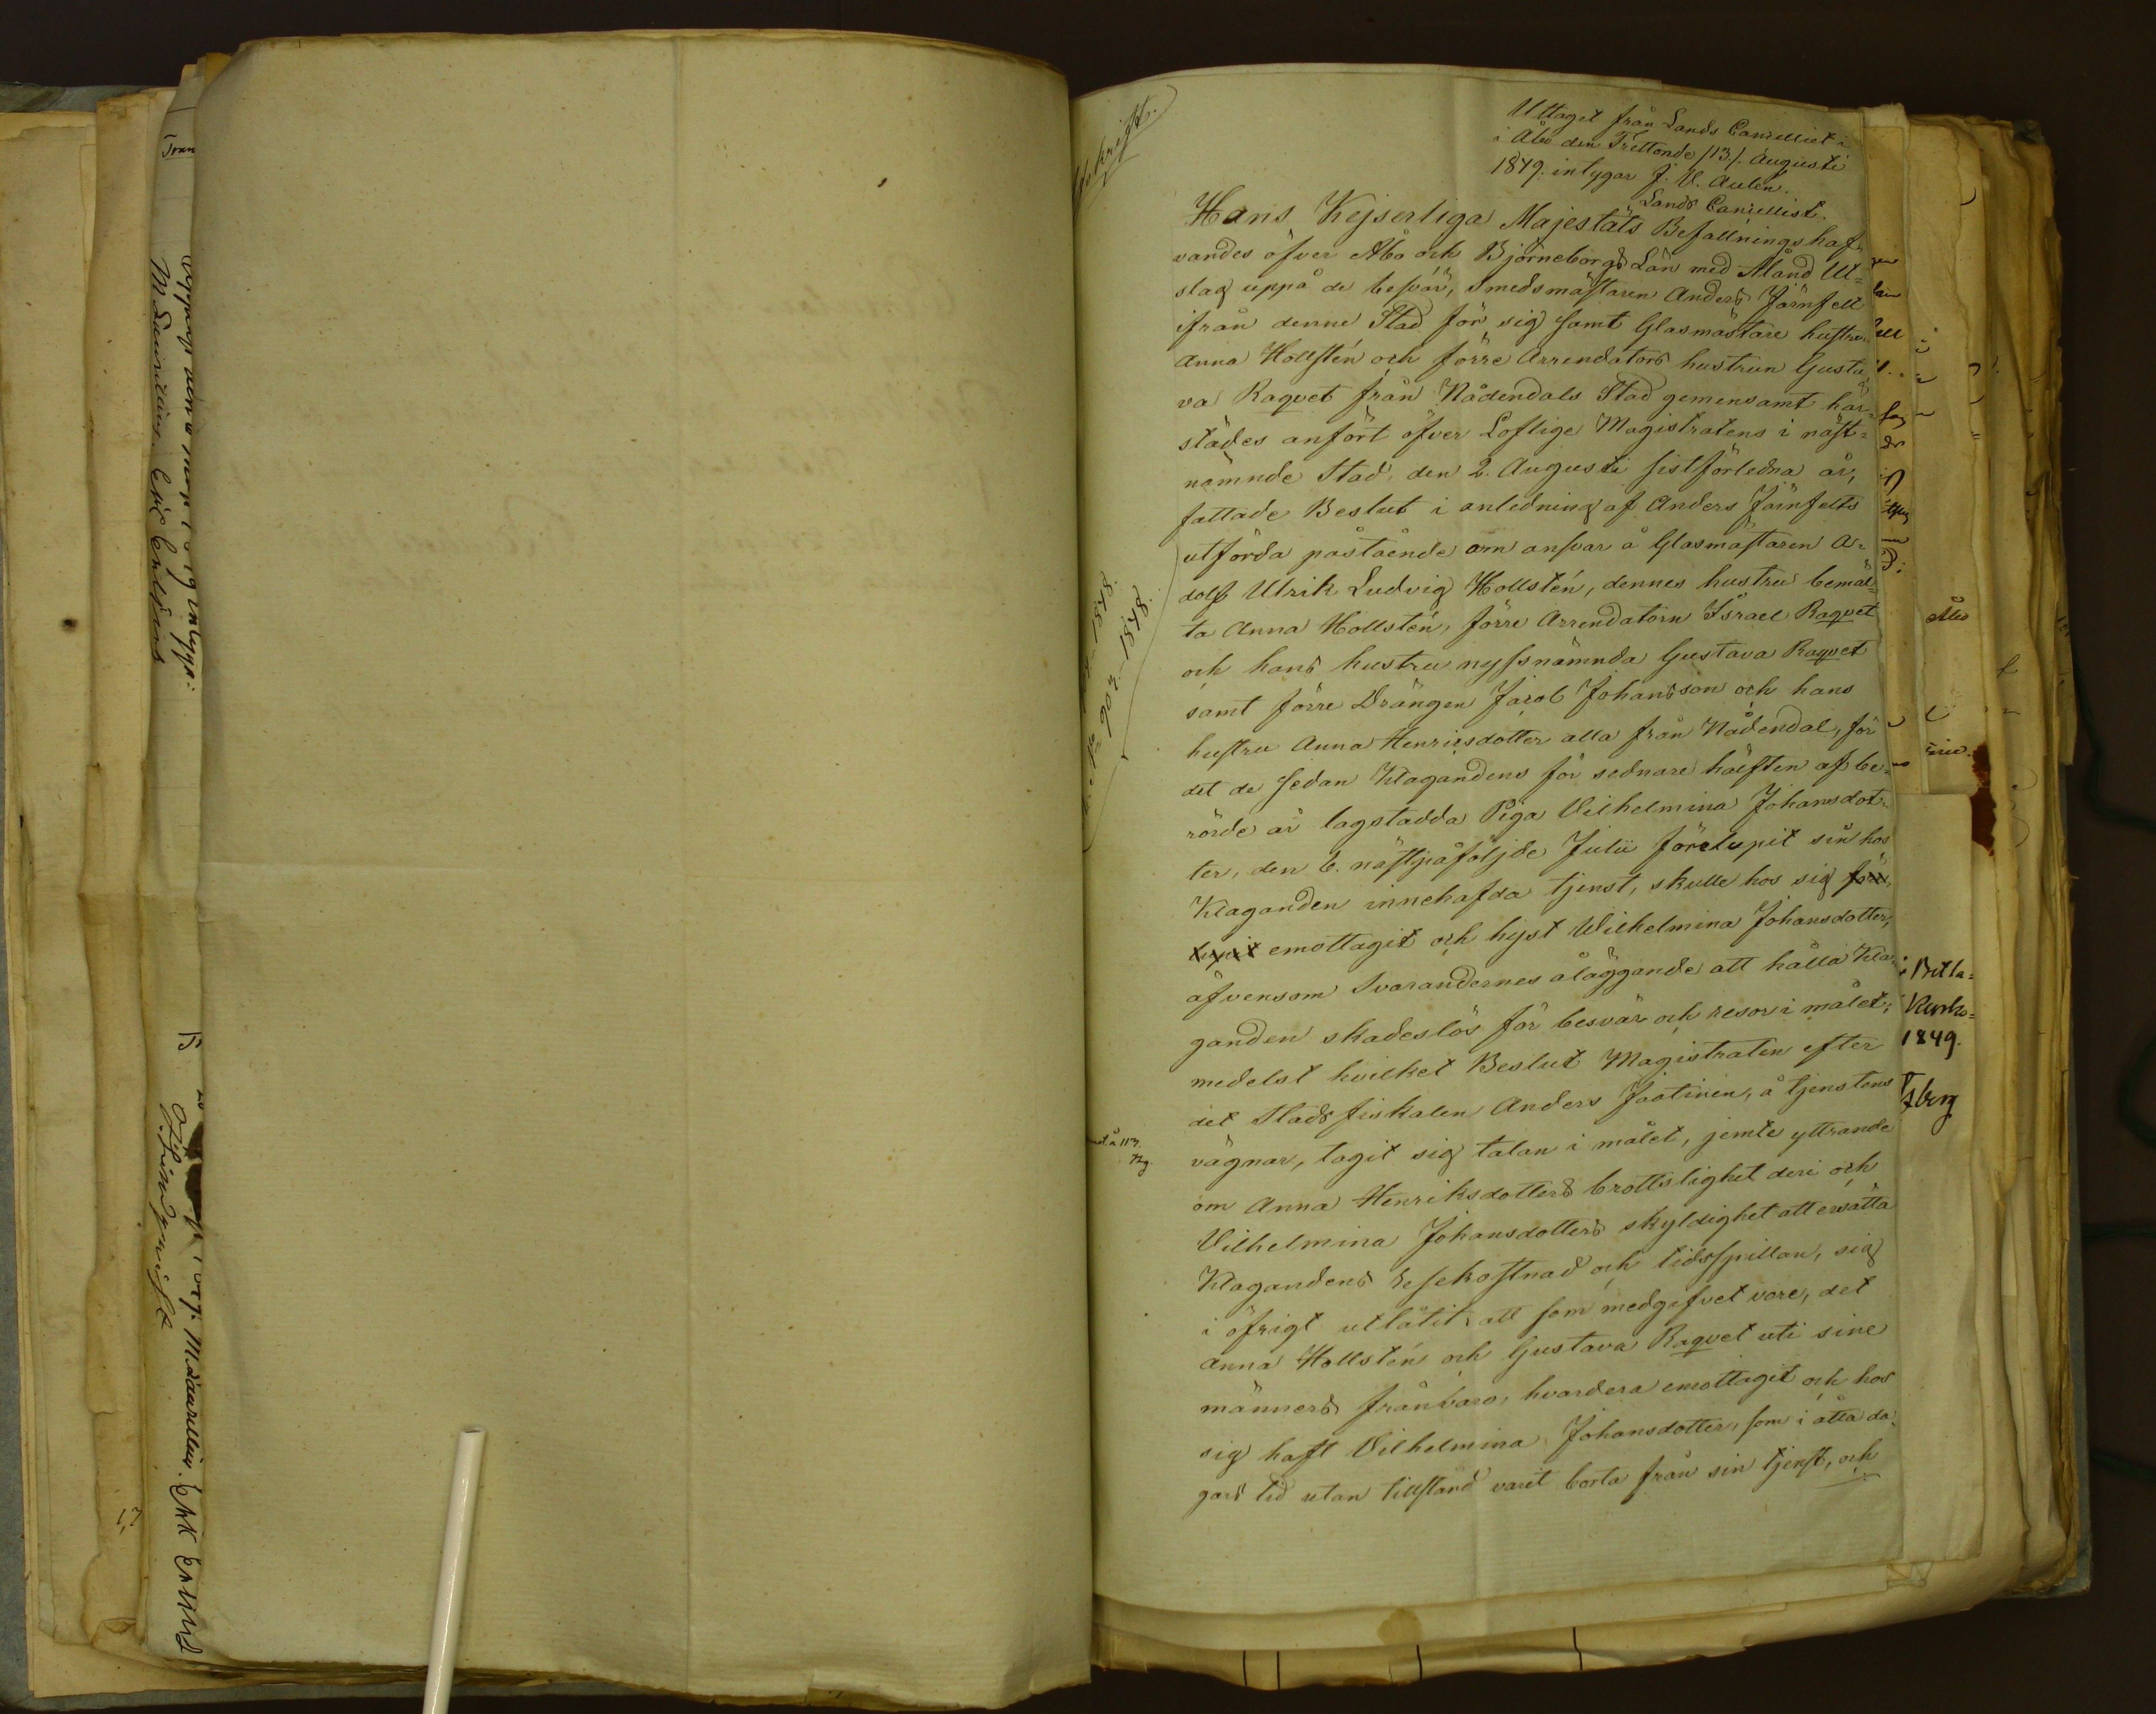 Afskrift.
Uttaget från Lands Cancelliet i
i Åbo den Trettonde /13/. Augusti
1849. intygar J. V. Aulén.
Lands Cancellist.
Hans Kejserliga Majestäts Befallningshaf-
vandes öfver Åbo och Björneborgs Län med Åland Ut-
slag uppå de besvär, Smedsmästaren Anders Järnfelt
ifrån denne Stad för sig samt Glasmästare hustrun
Anna Hollstén och förre Arrendators hustrun Gusta-
va Raquet från Nådendals Stad gemensamt här-
städes anfört öfver Loflige Magistratens i näst-
nämnde Stad, den 2. Augusti sistförledna år,
fattade Beslut i anledning af Anders Järnfelts
utförda påstående om ansvar å Glasmästaren A-
dolf Ulrik Ludvig Hollstén, dennes hustru bemäl-
ta Anna Hollstén, förre Arrendatorn Israel Raquet
och hans hustru nyssnämnda Gustava Raquet
samt förre Drängen Jacob Johansson och hans
hustru Anna Henricsdotter alla från Nådendal, för
det de sedan Klagandens för sednare hälften af be-
rörde år lagstadda Piga Vilhelmina Johansdot-
ter, den 6. nästpåföljde Julii förelupit sin hos
Klaganden innehafda tjenst, skulle hos sig före-
lupit emottagit och hyst Wilhelmina Johansdotter,
äfvensom Svarandernes åläggande att hålla Kla-
ganden skadeslös för besvär och resor i målet;
medelst hvilket Beslut Magistraten efter
det Stads fiskalen Anders Jaatinen, å tjenstens
vägnar, tagit sig talan i målet, jemte yttrande
om Anna Henriksdotters brottslighet deri och
Vilhelmina Johansdotters skyldighet att ersätta
Klagandens resekostnad och tidsspillan, sig
i öfrigt utlåtit: att som medgifvet vore, det
Anna Hollstén och Gustava Raquet uti sine
männers frånvaro, hvardera emottagit och hos
sig haft Vilhelmina Johansdotter, som i åtta da-
gars tid utan tillstånd varit borta från sin tjenst, och
1849.
Åbo